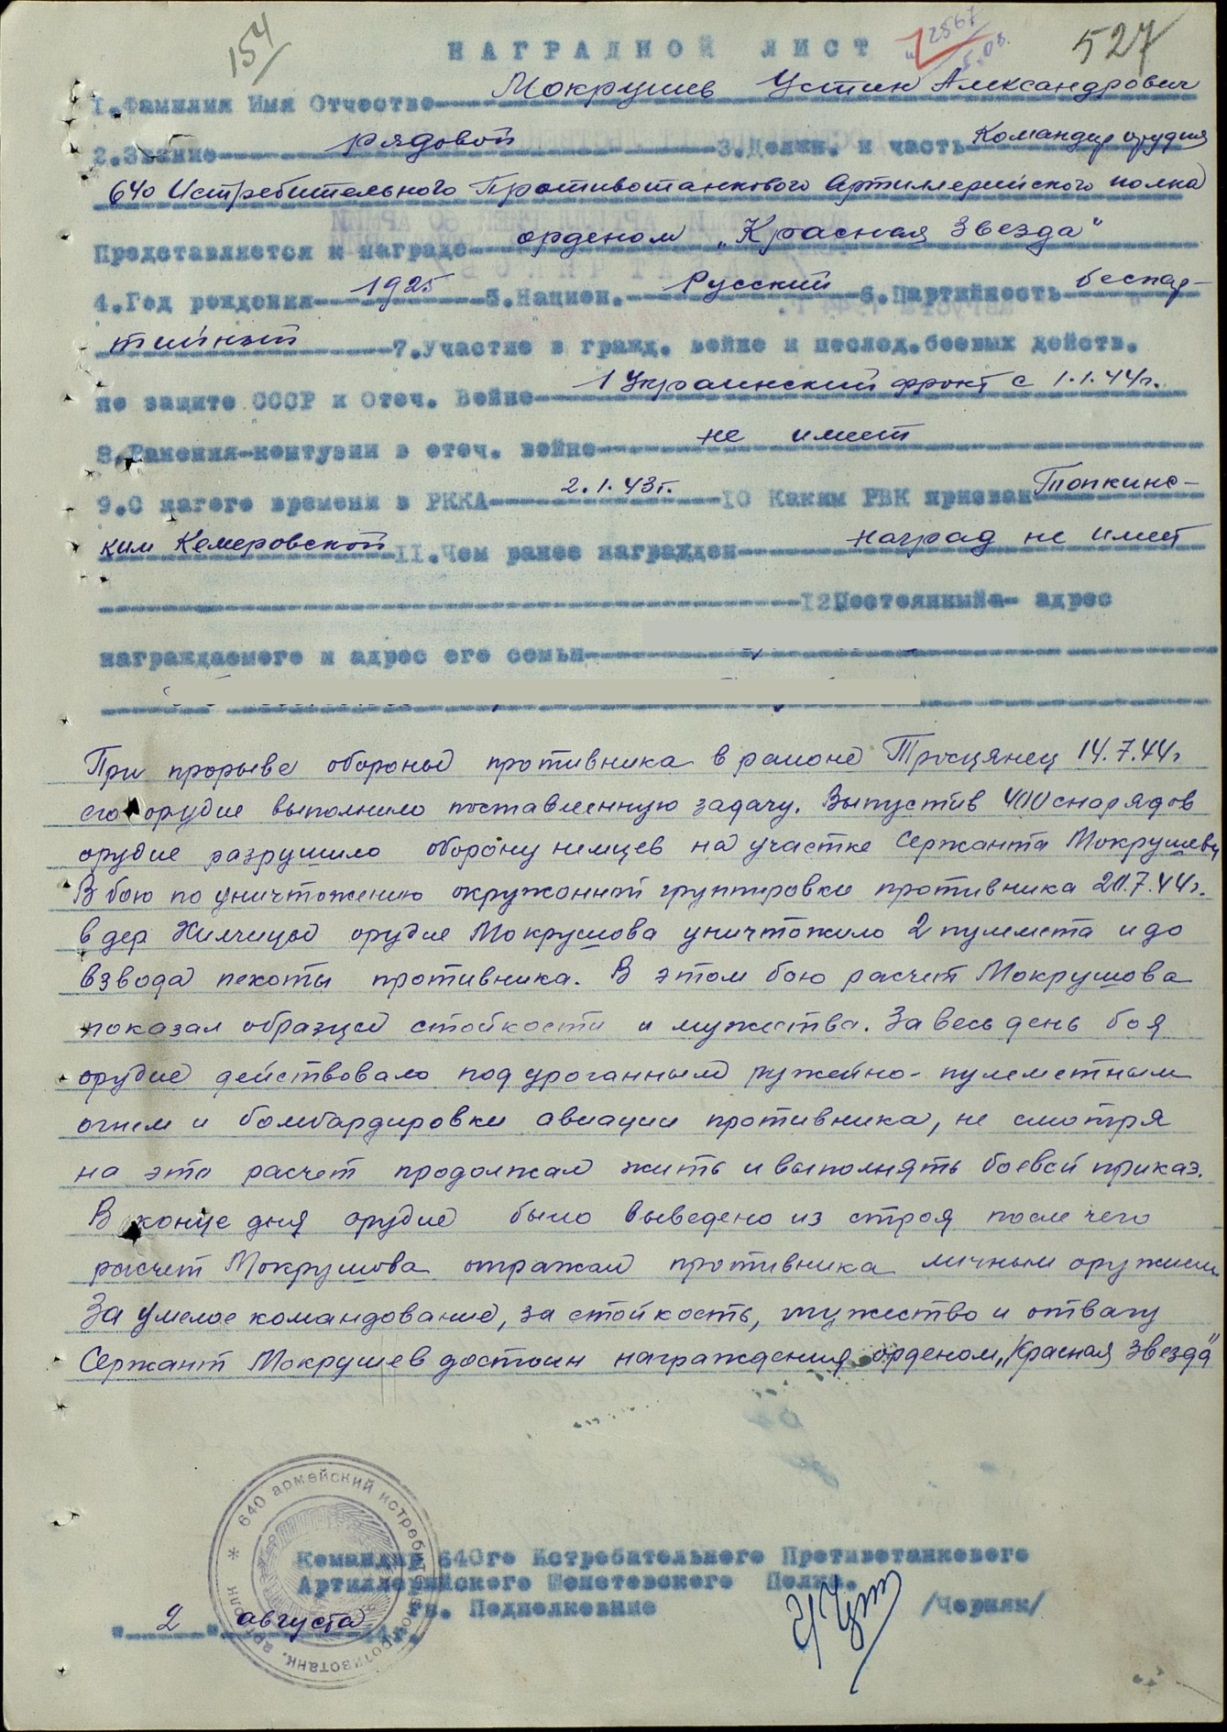 154
2867
527
НАГРАДНОЙ ЛИСТ
1.Фамилия Имя Отчество Мокрушев Устин Александрович
2.Звание рядовой 3.Должн. и часть Командир орудия
640 Истребительного Противотанкового Артиллерийского полка
Представляется к награде орденом „Красная Звезда"
4.Год рождения 1925 5.Национ. Русский 6.Партийность беспар-
тийный 7.Участие в гражд. войне и послед.боевых действ.
по защите СССР и Отеч. Войне 1 Украинский фронт с 1.1.44г.
8.Ранения-контузии в отеч. войне не имеет
9.С какого времени в РККА 2.1.43г. 10 Каким РВК призван Топкинс-
ким Кемеровской 11.Чем ранее награжден наград не имеет
12Постоянный адрес
награждаемого и адрес его семьи
При прорыве обороны противника в районе Тросцянец 14.7.44г
его орудие выполнило поставленную задачу. Выпустив 400 снарядов
орудие разрушило оборону немцев на участке Сержанта Мокрушева
В бою по уничтожению окружонной группировки противника 20.7.44г.
в дер Хилчицы орудие Мокрушова уничтожило 2 пулемета и до
взвода пехоты противника. В этом бою расчет Мокрушова
показал образцы стойкости и мужества. За весь день боя
орудие действовало под ураганным ружейно-пулеметным
огнем и бомбардировки авиации противника, не смотря
на это расчет продолжал жить и выполнять боевой приказ.
В конце дня орудие было выведено из строя после чего
расчет Мокрушова отражал противника личным оружием
За умелое командование, за стойкость, мужество и отвагу
Сержант Мокрушев достоин награждения орденом „Красная Звезда"
640 армейский истребит. противотанк. артполк
Командир 640го Истребительного Противотанкового
Артиллерийского Полка.
Гв. Подполковник /Черняк/
"2" августа 44г.